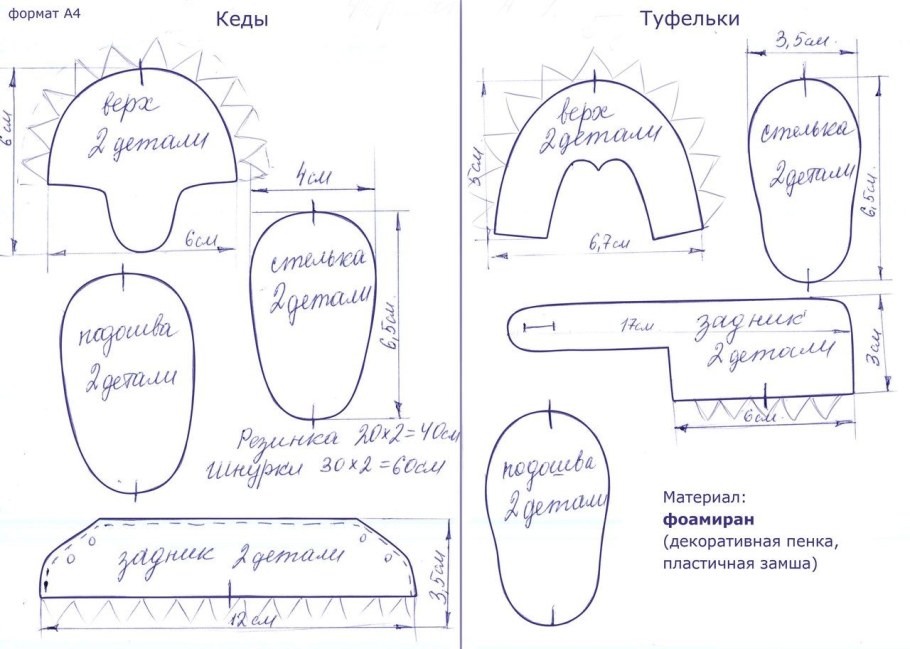 формат А4
Кеды
6см
верх
2 детали
6см
4см
стелька
2 детали
6,5см.
подошва
2 детали
Резинка 20х2=40см
Шнурки 30х2=60см
задник 2 детали
3,5см
12см
Туфельки
5см
верх
2 детали
6,7см
3,5см.
стелька
2 детали
6,5см.
17см
задник
2 детали
3см
6см.
подошва
2 детали
Материал:
фоамиран
(декоративная пенка,
пластичная замша)